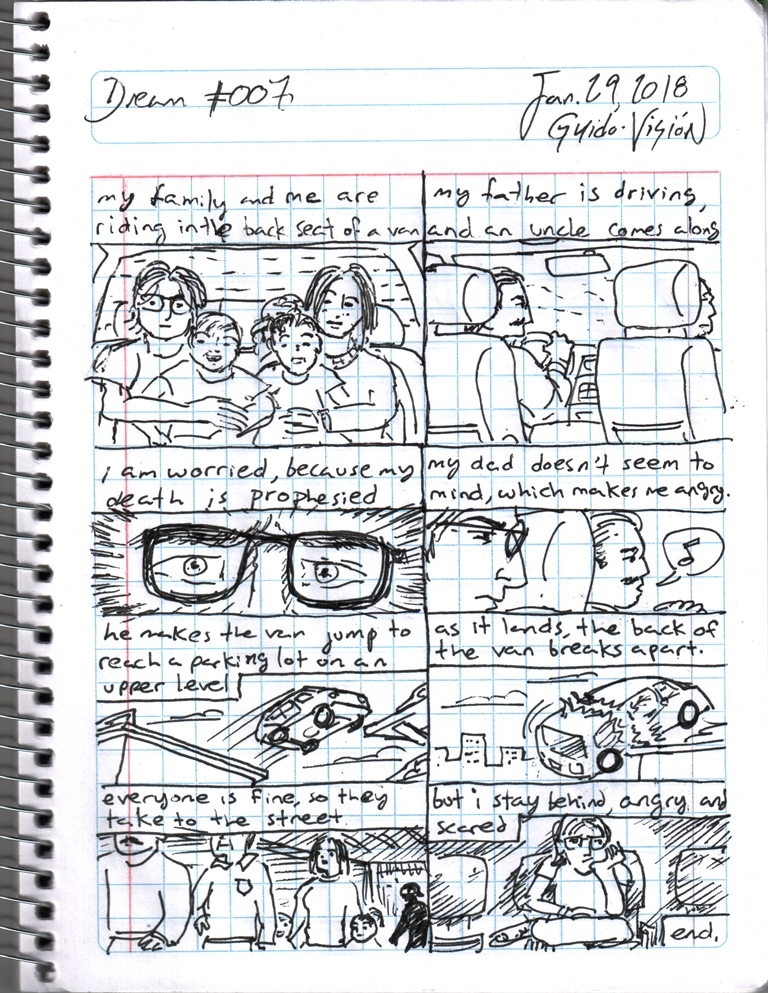 Dream #007
Jan. 29, 2018
Guido-Visión
my family and me are
riding in the back seat of a van
my father is driving,
and an uncle comes along
i am worried, because my
death is prophesied
my dad doesn't seem to
mind, which makes me angry.
he makes the van jump to
reach a parking lot on an
upper level
as it lands, the back of
the van breaks apart.
everyone is fine, so they
take to the street.
but i stay behind, angry and
scared
end.